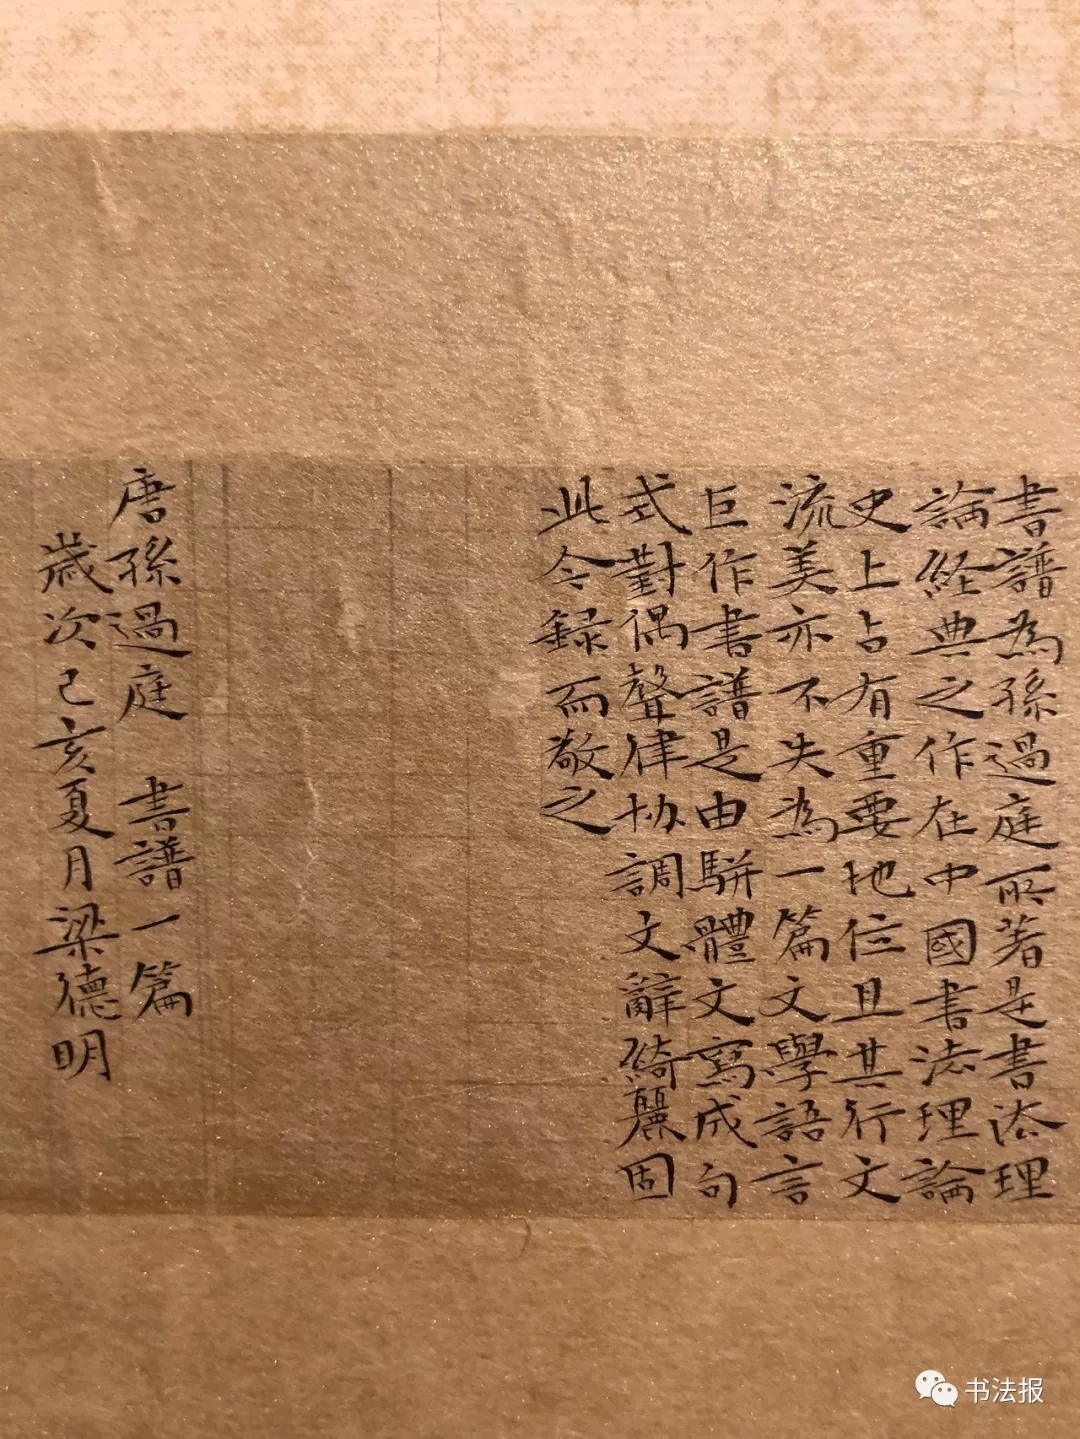 書譜為孫過庭所著是書法理
論経典之作在中國書法理論
史上占有重要地位且其行文
流美亦不失為一篇文學語言
巨作書譜是由駢體文寫成句
式對偶聲律协調文辭綺麗固
此今録而敬之
唐孫過庭 書譜一篇
歲次己亥夏月梁德明
书法报